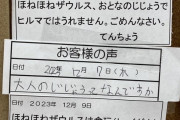 ほねほねザウルス、おとなのじじょうで
ヒルマではうれません。ごめんなさい。
てんちょう
お客様の声
日付
12月7日(木)
大人のじじょうってなんですか
日付 2023年 12月 9日